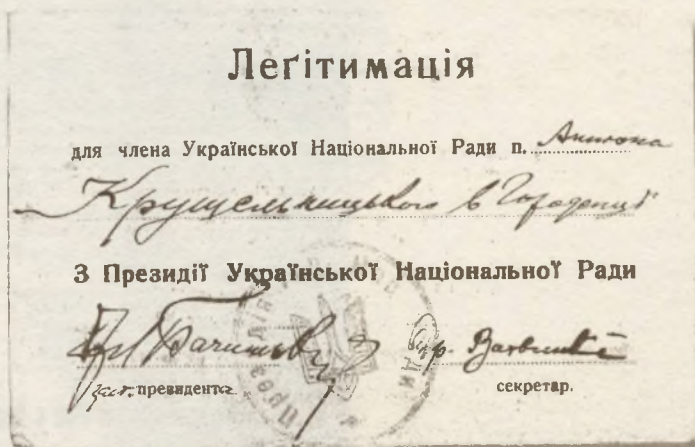 Леґітимація
для члена Української Національної Ради п. Антона
Крушельницького в Городенці
З Президії Української Національної Ради
Заст. президента
секретар.